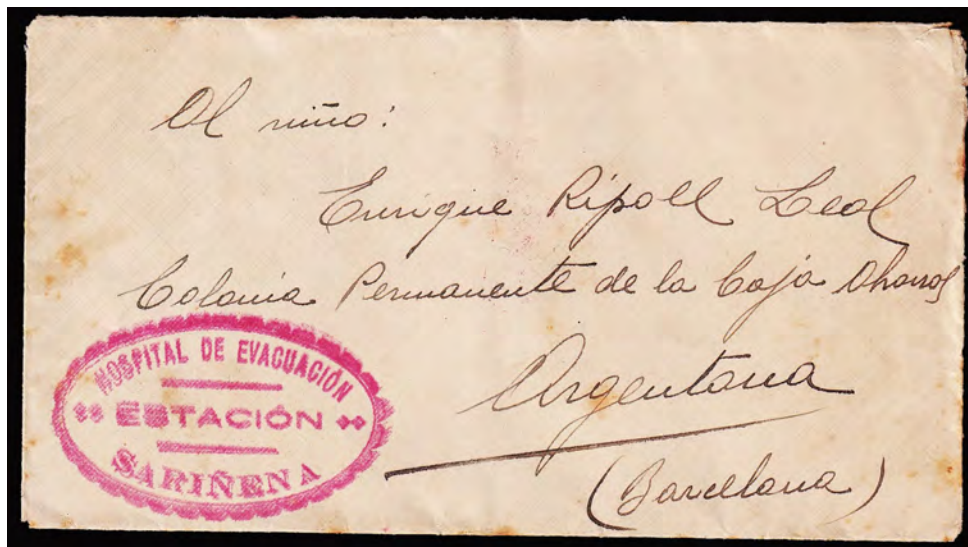 Al niño:
Enrique Ripoll Leal
Colonia Permanente de la Caja Ahorros
Argentona
(Barcelona)
HOSPITAL DE EVACUACIÓN
ESTACIÓN
SARIÑENA